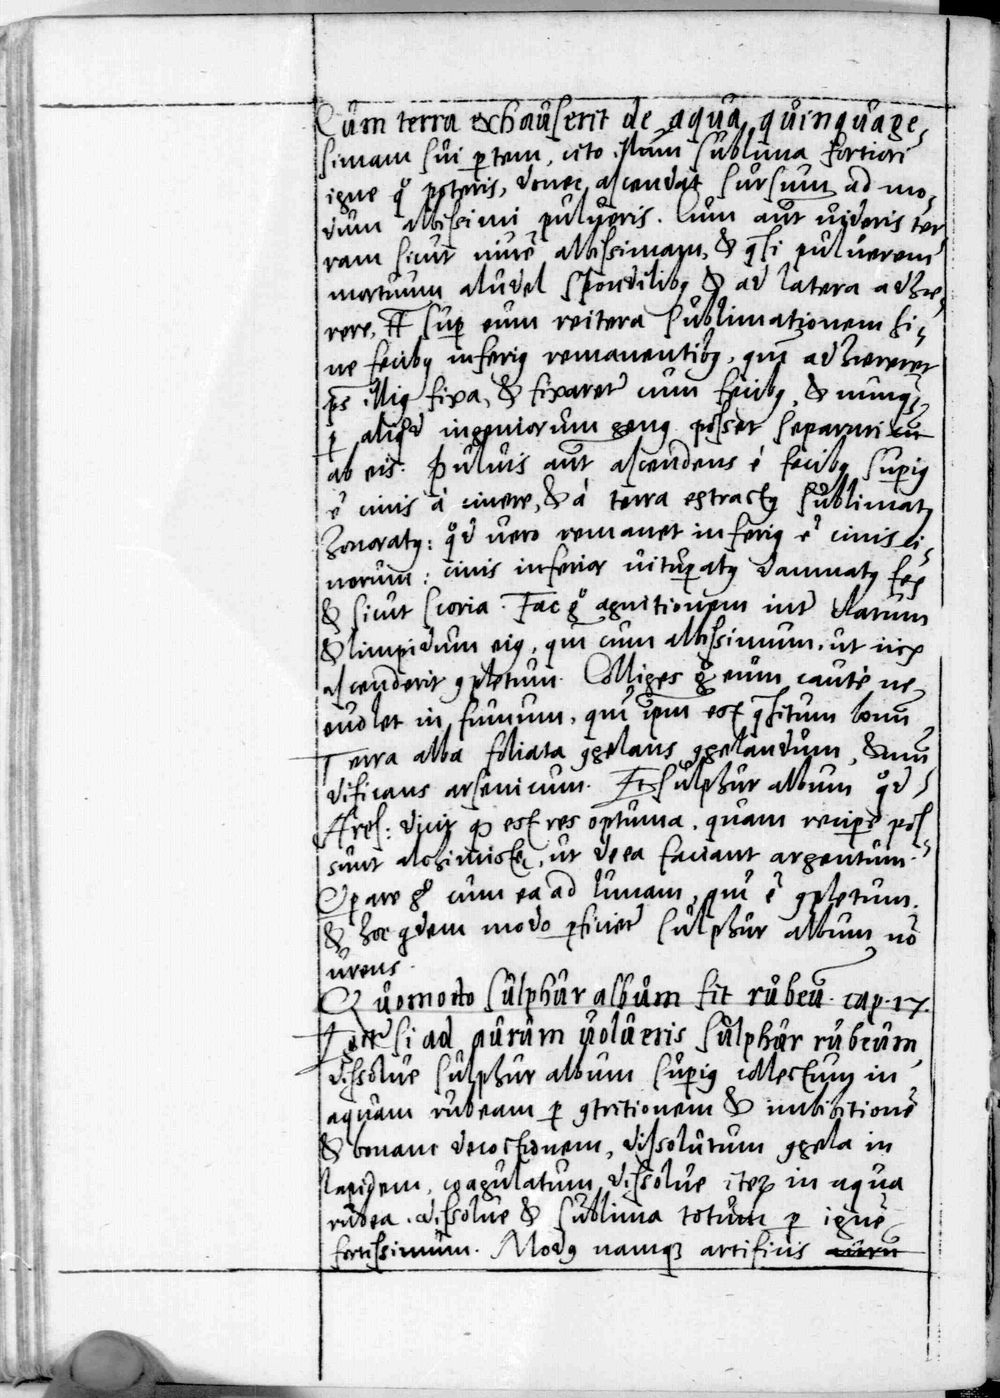 Cum terra exhauserit de aqua quinquage-
simam sui ptem, cito illam sublima fortiori
igne q° poteris, donec ascendat sursum ad mo-
dum albissimi pulveris. Cum aut videris ter-
ram sicut nivē albissimam, & qsi pulverem
mortuum aludel spondilibꝫ & ad latera adhæ-
rere, sup eum reitera sublimationem si-
ne fecibꝫ inferiꝰ remanentibꝫ, qm̄ adhæreret
ps illiꝰ fixa, & fixaret cum fecibꝫ, & nunqꝫ
p aliqd ingeniorum genꝰ posset separari
ab eis. Pulvis aut ascendens è fecibꝫ supiꝰ
ē cinis à cinere, & à terra extractꝰ sublimatꝰ
honoratꝰ: qd vero remanet inferiꝰ ē cinis ci-
nerum: cinis inferior vitupatꝰ damnatꝰ fex
& sicut scoria. Fac g° agnitionem int clarum
& limpidum eiꝰ, qm cum albissimum ut nix
ascenderit ꝯpletum. Colliges g° eum cautè ne
evolet in fumum, qm̄ ipm est qsitum bonū
Terra alba foliata ꝯgelans ꝯgelandum, & mū
dificans arsenicum. Et sulphur album qd
Arist: dicit qꝫ est res optuma, quam recipe pos-
sunt alchimistæ, ut de ea faciant argentum.
Opare g° cum ea ad lunam, qm̄ ē ꝯpletum.
& hoc qdem modo pficiet sulphur album nō
urens.
Quomodo sulphur album fit rubeū. cap. 17.
si ad aurum volueris sulphur rubeum,
dissolve sulphur album supiꝰ collectum in
aquam rubeam p ꝯtritionem & imbibitionē
& bonam decoctionem, dissolutum ꝯgela in
lapidem, coagulatum dissolve iterꝫ in aqua
rubea. dissolve & sublima totum p ignē
fortissimum. Modꝰ namqꝫ artificis